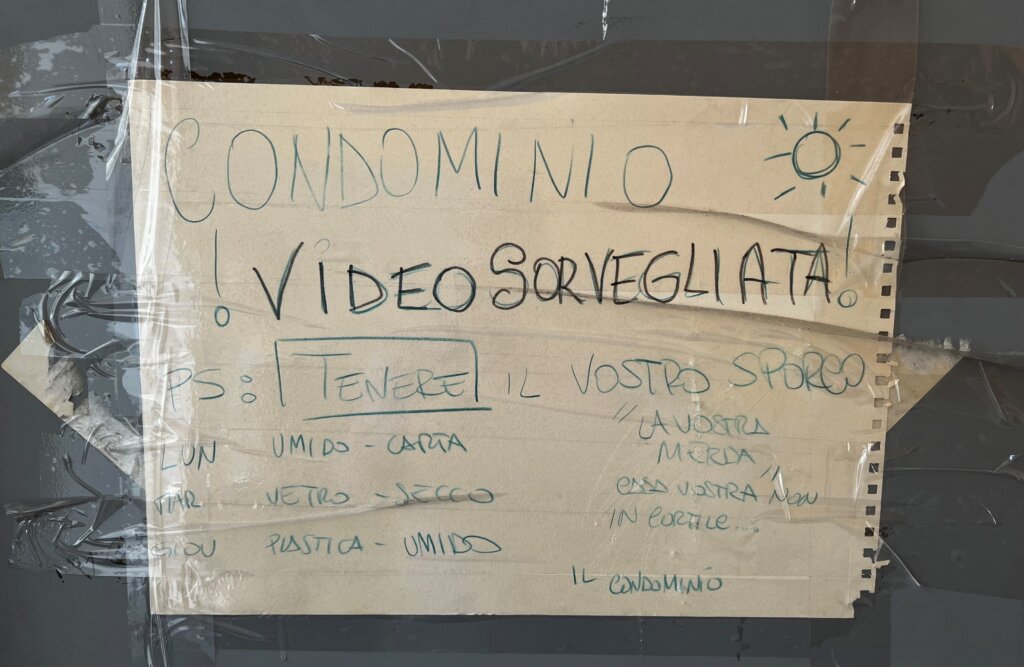 CONDOMINIO
! VIDEOSORVEGLIATA!
PS: TENERE IL VOSTRO SPORCO
"LA VOSTRA
MERDA"
CASA VOSTRA NON
IN CORTILE...
LUN UMIDO - CARTA
MAR VETRO - SECCO
GIOV PLASTICA - UMIDO
IL CONDOMINIO